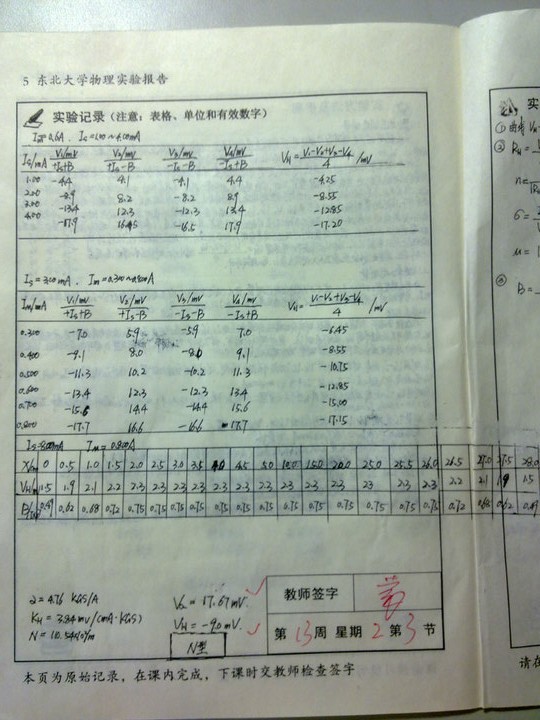 5 东北大学物理实验报告
实验记录（注意：表格、单位和有效数字）
Im=0.6A, Is=1.00~4.00mA
Is/mA V1/mV +Is+B V2/mV +Is-B V3/mV -Is-B V4/mV -Is+B VH=(V1-V2+V3-V4)/4 /mV
1.00 -4.4 4.1 -4.1 4.4 -4.25
2.00 -8.9 8.2 -8.2 8.9 -8.55
3.00 -13.4 12.3 -12.3 13.4 -12.85
4.00 -17.9 16.45 -16.5 17.9 -17.20
Is=3.00mA, Im=0.300~0.800A
Im/mA V1/mV +Is+B V2/mV +Is-B V3/mV -Is-B V4/mV -Is+B VH=(V1-V2+V3-V4)/4 /mV
0.300 -7.0 5.9 -5.9 7.0 -6.45
0.400 -9.1 8.0 -8.0 9.1 -8.55
0.500 -11.3 10.2 -10.2 11.3 -10.75
0.600 -13.4 12.3 -12.3 13.4 -12.85
0.700 -15.6 14.4 -14.4 15.6 -15.00
0.800 -17.7 16.6 -16.6 17.7 -17.15
Im=0.800A
0 0.5 1.0 1.5 2.0 2.5 3.0 3.5 4.0 4.5 5.0 10.0 15.0 20.0 25.0 25.5 26.0 26.5 27.0 27.5 28.0
1.5 1.9 2.1 2.2 2.3 2.3 2.3 2.3 2.3 2.3 2.3 2.3 2.3 2.3 2.3 2.3 2.3 2.2 2.1 1.9 1.5
0.49 0.62 0.68 0.72 0.75 0.75 0.75 0.75 0.75 0.75 0.75 0.75 0.75 0.75 0.75 0.75 0.75 0.72 0.68 0.62 0.49
2=4.76 KGS/A
KH=3.84mV/(mA·KGS)
VH=-9.0mV
N型
教师签字
第13周 星期2 第3节
本页为原始记录，在课内完成，下课时交教师检查签字
实
①
②
RH=
n=
σ=
μ=
B=
请在